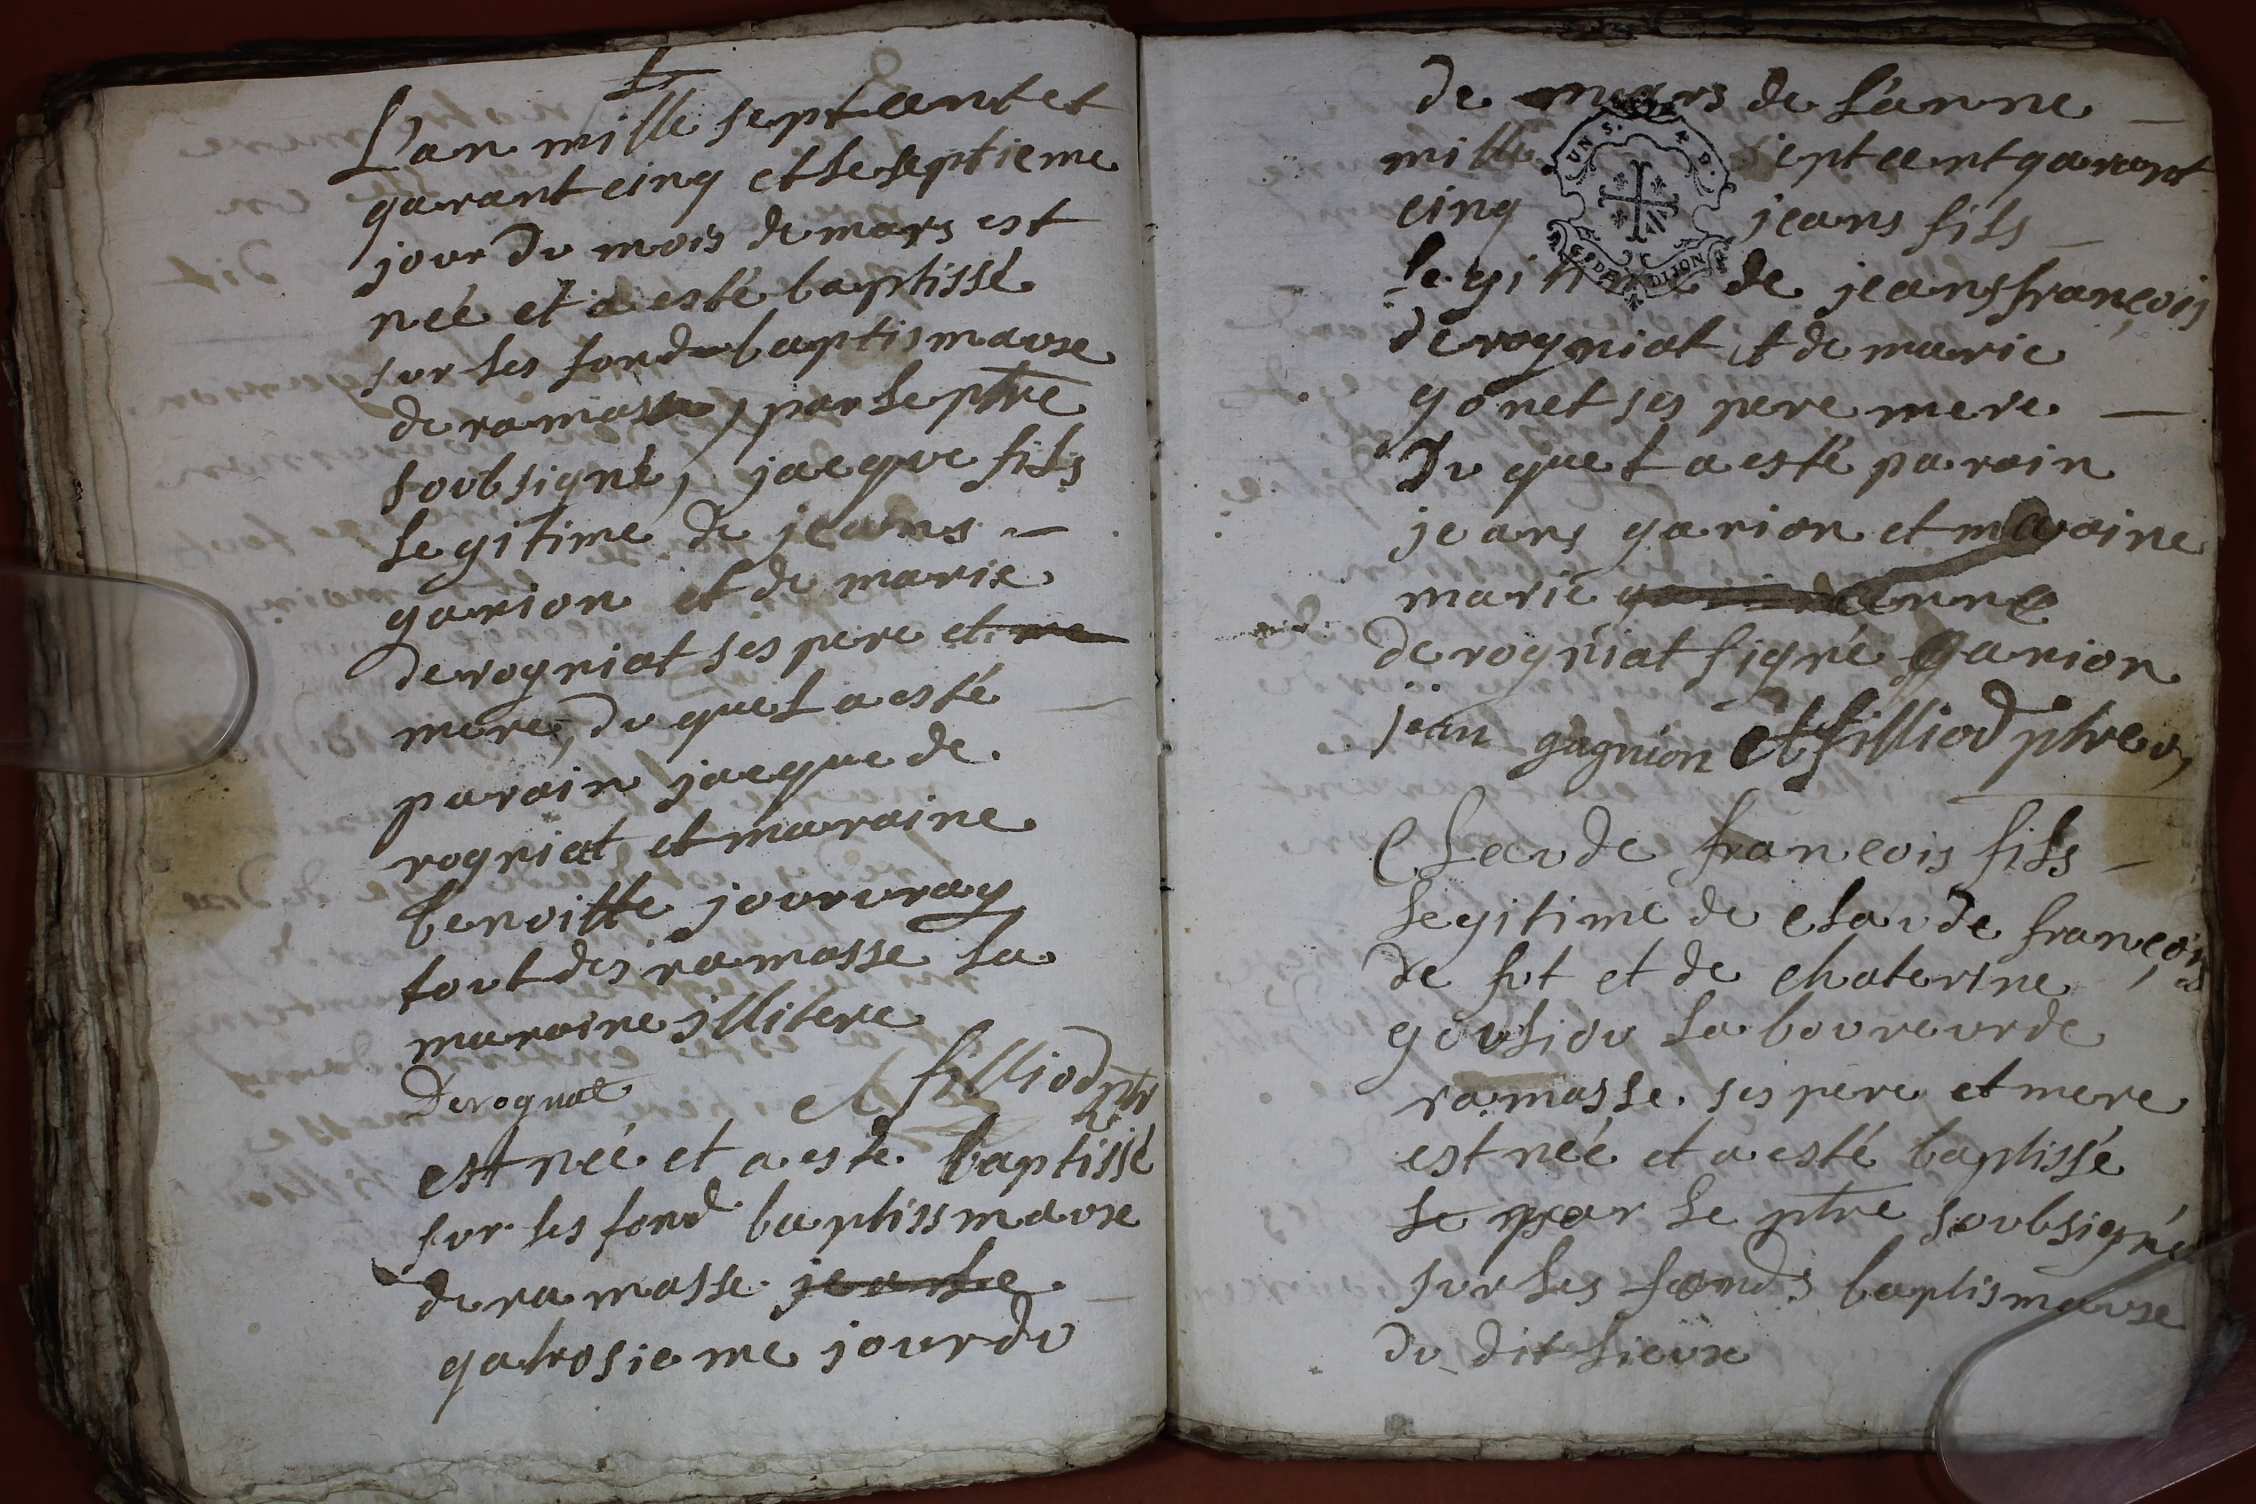 L'an mille septcentet
qarantcinq et le septieme
jour du mois de mars est
née et a esté baptissé
sur les fond baptismause
de ramasse, par le ptre
soubsigné, jacque fils
legitime de jeans
garion et de marie
derogniat ses pere et me
mere, du quel a esté
parain jacque de
rogniat et maraine
benoitte jouvray
tout des ramasse la
maraine jllitere
Derognat filliod ptr
est née et a esté baptissé
sur les fond baptissmause
de ramasse
qatrosieme jourdu
de mars de l'anne
mille septcentqarant
cinq jeans fils
legitime de jeansfrançois
derogniat et de marie
gonet ses pere mere
Du quel a esté parain
jeans garion et maraine
marie
derogniat signé garion
jean gagnion filliod ptre
Claude françois fils
legitime de claude françois
de fut et de chaterine
goussiou laboureurde
ramasse ses pere et mere
est née et a esté baptissé
le par le ptre soubsigné
sur les fonds baptismause
du dit lieux
UNS. 4 D.
G. DE DIJON